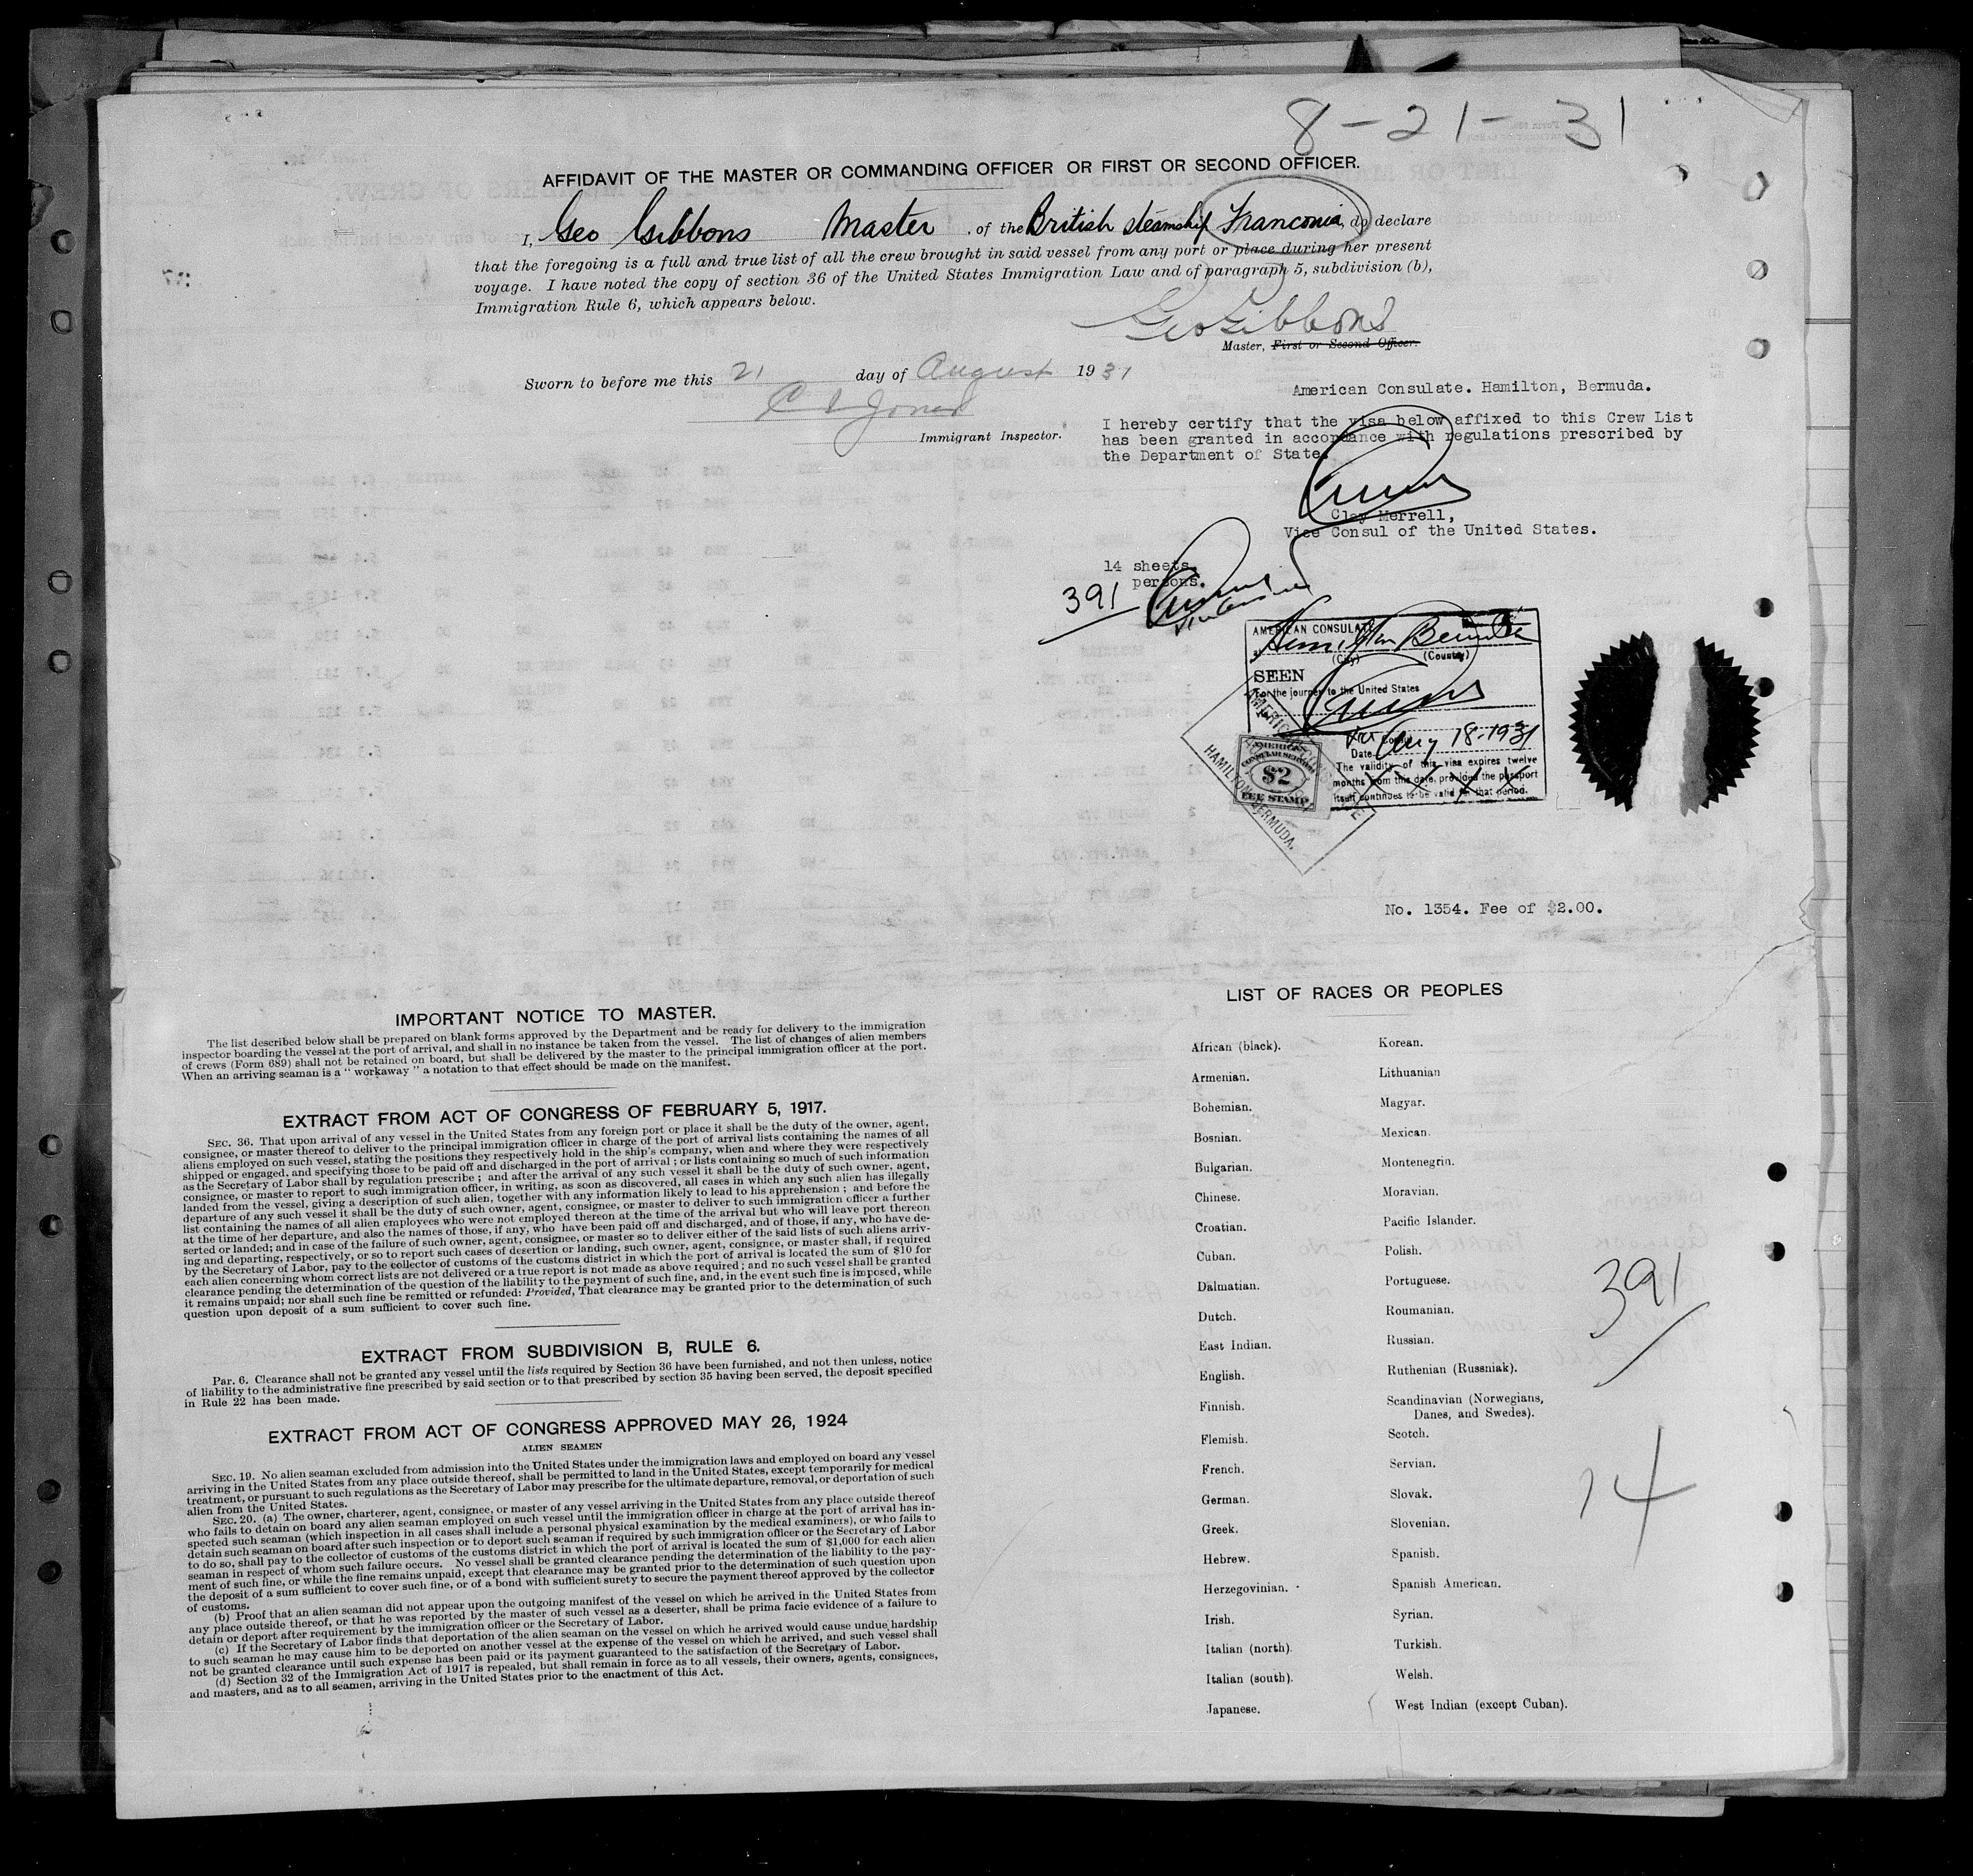 8-21-31
AFFIDAVIT OF THE MASTER OR COMMANDING OFFICER OR FIRST OR SECOND OFFICER.
I, Geo Gibbons Master, of the British steamship Franconia, do declare
that the foregoing is a full and true list of all the crew brought in said vessel from any port or place during her present
voyage. I have noted the copy of section 36 of the United States Immigration Law and of paragraph 5, subdivision (b),
Immigration Rule 6, which appears below.
Geo Gibbons
Master, First or Second Officer.
Sworn to before me this 21 day of August 1931
Jones
Immigrant Inspector.
American Consulate. Hamilton, Bermuda.
I hereby certify that the visa below affixed to this Crew List
has been granted in accordance with regulations prescribed by
the Department of State.
Clay Merrell,
Vice Consul of the United States.
14 sheets.
391 persons.
AMERICAN CONSULATE
at Hamilton Bermuda
(City) (Country)
SEEN
For the journey to the United States
Vice Consul
Date Aug 18-1931
The validity of this visa expires twelve
months from this date, provided the passport
itself continues to be valid for that period.
AMERICAN
CONSULAR SERVICE
$2
FEE STAMP
HAMILTON, BERMUDA.
No. 1354. Fee of $2.00.
IMPORTANT NOTICE TO MASTER.
The list described below shall be prepared on blank forms approved by the Department and be ready for delivery to the immigration
inspector boarding the vessel at the port of arrival, and shall in no instance be taken from the vessel. The list of changes of alien members
of crews (Form 689) shall not be retained on board, but shall be delivered by the master to the principal immigration officer at the port.
When an arriving seaman is a "workaway" a notation to that effect should be made on the manifest.
EXTRACT FROM ACT OF CONGRESS OF FEBRUARY 5, 1917.
SEC. 36. That upon arrival of any vessel in the United States from any foreign port or place it shall be the duty of the owner, agent,
consignee, or master thereof to deliver to the principal immigration officer in charge of the port of arrival lists containing the names of all
aliens employed on such vessel, stating the positions they respectively hold in the ship's company, when and where they were respectively
shipped or engaged, and specifying those to be paid off and discharged in the port of arrival; or lists containing so much of such information
as the Secretary of Labor shall by regulation prescribe; and after the arrival of any such vessel it shall be the duty of such owner, agent,
consignee, or master to report to such immigration officer, in writing, as soon as discovered, all cases in which any such alien has illegally
landed from the vessel, giving a description of such alien, together with any information likely to lead to his apprehension; and before the
departure of any such vessel it shall be the duty of such owner, agent, consignee, or master to deliver to such immigration officer a further
list containing the names of all alien employees who were not employed thereon at the time of the arrival but who will leave port thereon
at the time of her departure, and also the names of those, if any, who have been paid off and discharged, and of those, if any, who have de-
serted or landed; and in case of the failure of such owner, agent, consignee, or master so to deliver either of the said lists of such aliens arriv-
ing and departing, respectively, or so to report such cases of desertion or landing, such owner, agent, consignee, or master shall, if required
by the Secretary of Labor, pay to the collector of customs of the customs district in which the port of arrival is located the sum of $10 for
each alien concerning whom correct lists are not delivered or a true report is not made as above required; and no such vessel shall be granted
clearance pending the determination of the question of the liability to the payment of such fine, and, in the event such fine is imposed, while
it remains unpaid; nor shall such fine be remitted or refunded: Provided, That clearance may be granted prior to the determination of such
question upon deposit of a sum sufficient to cover such fine.
EXTRACT FROM SUBDIVISION B, RULE 6.
Par. 6. Clearance shall not be granted any vessel until the lists required by Section 36 have been furnished, and not then unless, notice
of liability to the administrative fine prescribed by said section or to that prescribed by section 35 having been served, the deposit specified
in Rule 22 has been made.
EXTRACT FROM ACT OF CONGRESS APPROVED MAY 26, 1924
ALIEN SEAMEN
SEC. 19. No alien seaman excluded from admission into the United States under the immigration laws and employed on board any vessel
arriving in the United States from any place outside thereof, shall be permitted to land in the United States, except temporarily for medical
treatment, or pursuant to such regulations as the Secretary of Labor may prescribe for the ultimate departure, removal, or deportation of such
alien from the United States.
SEC. 20. (a) The owner, charterer, agent, consignee, or master of any vessel arriving in the United States from any place outside thereof
who fails to detain on board any alien seaman employed on such vessel until the immigration officer in charge at the port of arrival has in-
spected such seaman (which inspection in all cases shall include a personal physical examination by the medical examiners), or who fails to
detain such seaman on board after such inspection or to deport such seaman if required by such immigration officer or the Secretary of Labor
to do so, shall pay to the collector of customs of the customs district in which the port of arrival is located the sum of $1,000 for each alien
seaman in respect of whom such failure occurs. No vessel shall be granted clearance pending the determination of the liability to the pay-
ment of such fine, or while the fine remains unpaid, except that clearance may be granted prior to the determination of such question upon
the deposit of a sum sufficient to cover such fine, or of a bond with sufficient surety to secure the payment thereof approved by the collector
of customs.
(b) Proof that an alien seaman did not appear upon the outgoing manifest of the vessel on which he arrived in the United States from
any place outside thereof, or that he was reported by the master of such vessel as a deserter, shall be prima facie evidence of a failure to
detain or deport after requirement by the immigration officer or the Secretary of Labor.
(c) If the Secretary of Labor finds that deportation of the alien seaman on the vessel on which he arrived would cause undue hardship
to such seaman he may cause him to be deported on another vessel at the expense of the vessel on which he arrived, and such vessel shall
not be granted clearance until such expense has been paid or its payment guaranteed to the satisfaction of the Secretary of Labor.
(d) Section 32 of the Immigration Act of 1917 is repealed, but shall remain in force as to all vessels, their owners, agents, consignees,
and masters, and as to all seamen, arriving in the United States prior to the enactment of this Act.
LIST OF RACES OR PEOPLES
African (black).
Armenian.
Bohemian.
Bosnian.
Bulgarian.
Chinese.
Croatian.
Cuban.
Dalmatian.
Dutch.
East Indian.
English.
Finnish.
Flemish.
French.
German.
Greek.
Hebrew.
Herzegovinian.
Irish.
Italian (north).
Italian (south).
Japanese.
Korean.
Lithuanian
Magyar.
Mexican.
Montenegrin.
Moravian.
Pacific Islander.
Polish.
Portuguese.
Roumanian.
Russian.
Ruthenian (Russniak).
Scandinavian (Norwegians,
Danes, and Swedes).
Scotch.
Servian.
Slovak.
Slovenian.
Spanish.
Spanish American.
Syrian.
Turkish.
Welsh.
West Indian (except Cuban).
391
14